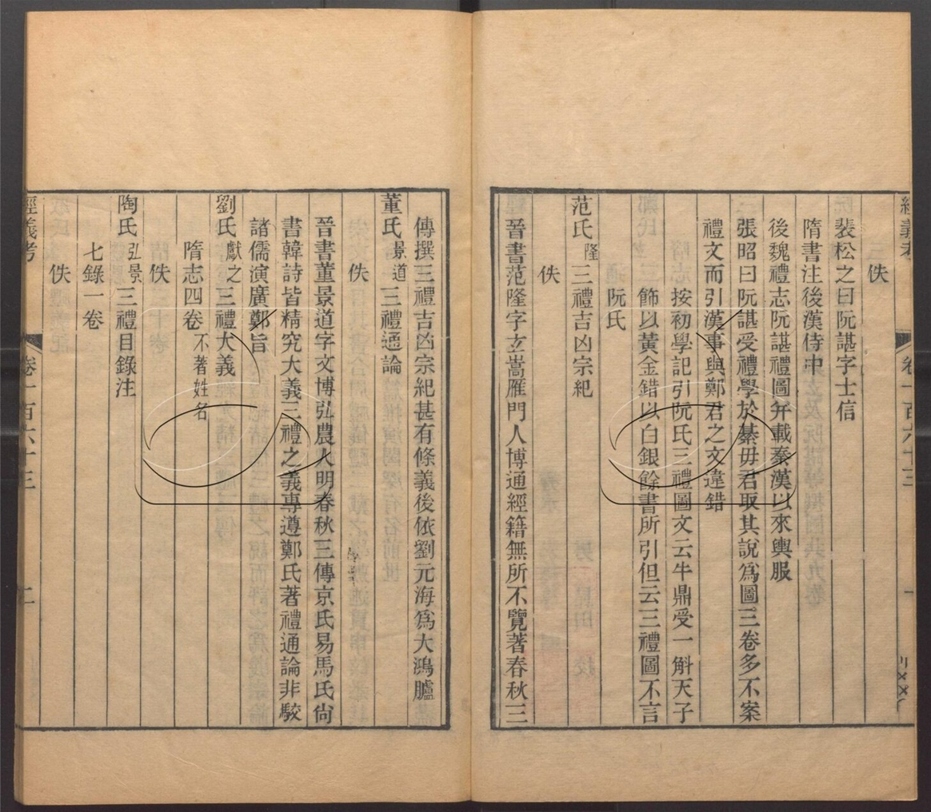 佚
裴松之曰阮諶字士信
隋書注後漢侍中
後魏禮志阮諶禮圖并載秦漢以來輿服
張昭曰阮諶受禮學於綦毋君取其說爲圖三卷多不案
禮文而引漢事與鄭君之文違錯
按初學記引阮氏三禮圖文云牛鼎受一斛天子
飾以黃金錯以白銀餘書所引但云三禮圖不言
阮氏
范氏隆三禮吉凶宗紀
佚
晉書范隆字玄嵩雁門人博通經籍無所不覽著春秋三
經義考
卷一百六十三
一
傳撰三禮吉凶宗紀甚有條義後依劉元海爲大鴻臚
董氏景道三禮通論
佚
晉書董景道字文博弘農人明春秋三傳京氏易馬氏尙
書韓詩皆精究大義三禮之義專遵鄭氏著禮通論非駮
諸儒演廣鄭旨
劉氏獻之三禮大義
隋志四卷不著姓名
佚
陶氏弘景三禮目錄注
七錄一卷
佚
經義考
卷一百六十三
二